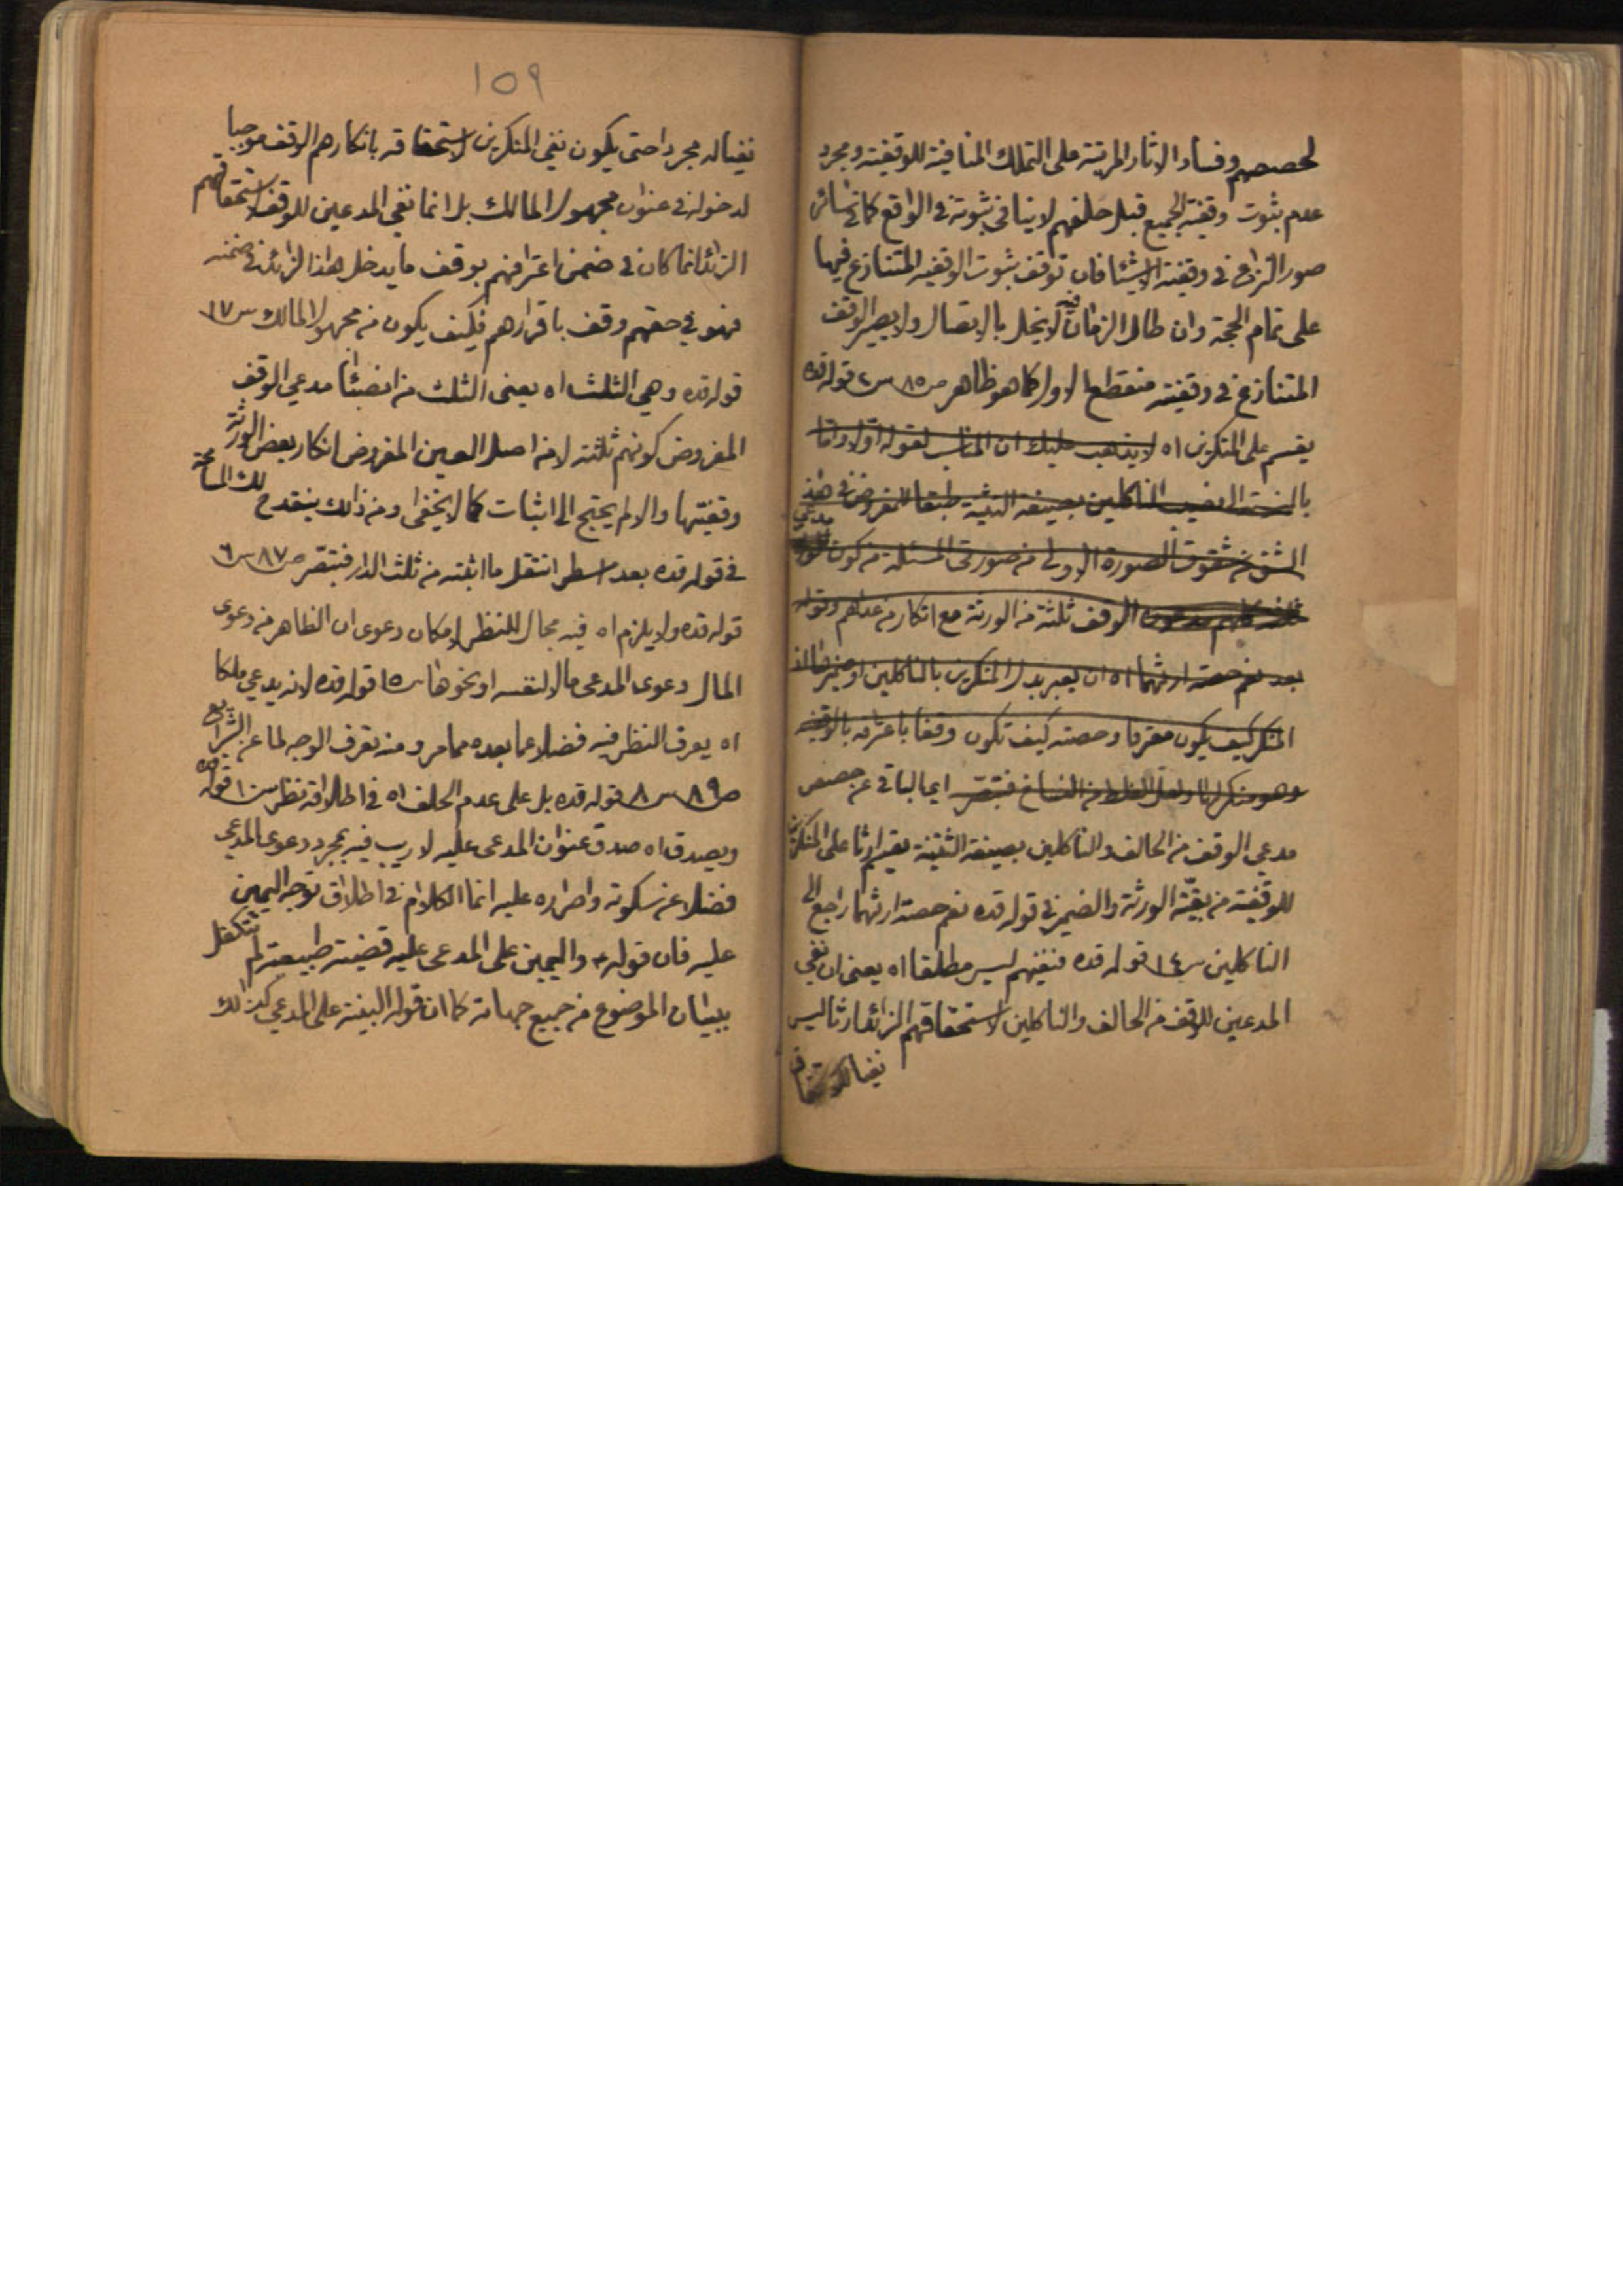 لحصصهم وفساد الاثار المرتبة على التملك المنافية للوقفية ومجرد
عدم ثبوت وقفية الجميع قبل حلفهم لا ينافي ثبوته في الواقع كما في سائر
صور النزاع في وقفية الاشياء فان توقف ثبوت الوقفية المتنازع فيها
على تمام الحجة وان طال الزمان لا يخل بالاتصال ولا يصير الوقف
المتنازع في وقفيته منقطع الاول كما هو ظاهر ص ٨٥ س ٤ قوله قده
يقسم على المنكرين اه لا يذهب عليك ان المناسب لقوله اولا واما
بالنسبة الى نصيب الناكلين بصيغة التثنية طبقا للمفروض في هذا
الشق من شقوق الصورة الاولى من صورتي المسئلة من كون مدعي
ثلثة كلهم يدعون الوقف ثلثة من الورثة مع انكار من عداهم وقوله
بعد نعم حصة ارثهما اه ان يعبر بدل المنكرين بالناكلين او
المنكر كيف يكون معترفا وحصته كيف تكون وقفا باعترافه بالوقفية
وهو منكر لها ولعل الغلط من النساخ فتبصر ايما الباقي عن حصص
مدعي الوقف من الحالف والناكلين بصيغة التثنية يقسم ارثا على المنكرين
للوقفية من بقية الورثة والضمير في قوله قده نعم حصة ارثهما راجع الى
الناكلين س ١٤ قوله قده فنفيهم ليس مطلقا اه يعني ان نفي
المدعين للوقف من الحالف والناكلين لاستحقاقهم الزائد ارثا ليس
نفيا
١٥٩
نفيا له مجردا حتى يكون نفي المنكرين لاستحقاقه بانكارهم الوقف موجبا
لدخوله في عنوان مجهول المالك بل انما نفي المدعين للوقف استحقاقهم
الزائد انما كان في ضمن اعترافهم بوقف ما يدخل هذا الزائد في ضمنه
فهو في حقهم وقف باقرارهم فكيف يكون من مجهول المالك س ١٧
قوله قده وهي الثلث اه يعني الثلث من انصباء مدعي الوقف
المفروض كونهم ثلثة لا من اصل العين المفروض انكار بعض الورثة
وقفيتها والا لم يحتج الى اثبات كما لا يخفى ومن ذلك ينقدح لك المسامحة
في قوله قده بعد اسطر انتقل ما اثبته من ثلث الدار فتبصر ص ٨٧ س ٦
قوله قده ولا يلزم اه فيه مجال للنظر لامكان دعوى ان الظاهر من دعوى
المال دعوى المدعي مالا لنفسه او نحوها س ١٥ قوله قده لانه يدعي ملكا
اه يعرف النظر فيه فضلا عما بعده مما مر ومنه تعرف الوجه لما عن الشرايع
ص ٨٩ س ٨ قوله قده بل على عدم الحلف اه في اطلاقه نظر س ١٠ قوله قده
ويصدق اه صدق عنوان المدعى عليه لا ريب فيه بمجرد دعوى المدعي
فضلا عن سكوته واصراره عليه انما الكلام في اطلاق توجه اليمين
عليه فان قوله ع واليمين على المدعى عليه قضية طبيعته لم تتكفل
ببيان الموضوع من جميع جهاته كما ان قوله البينة على المدعي كذلك